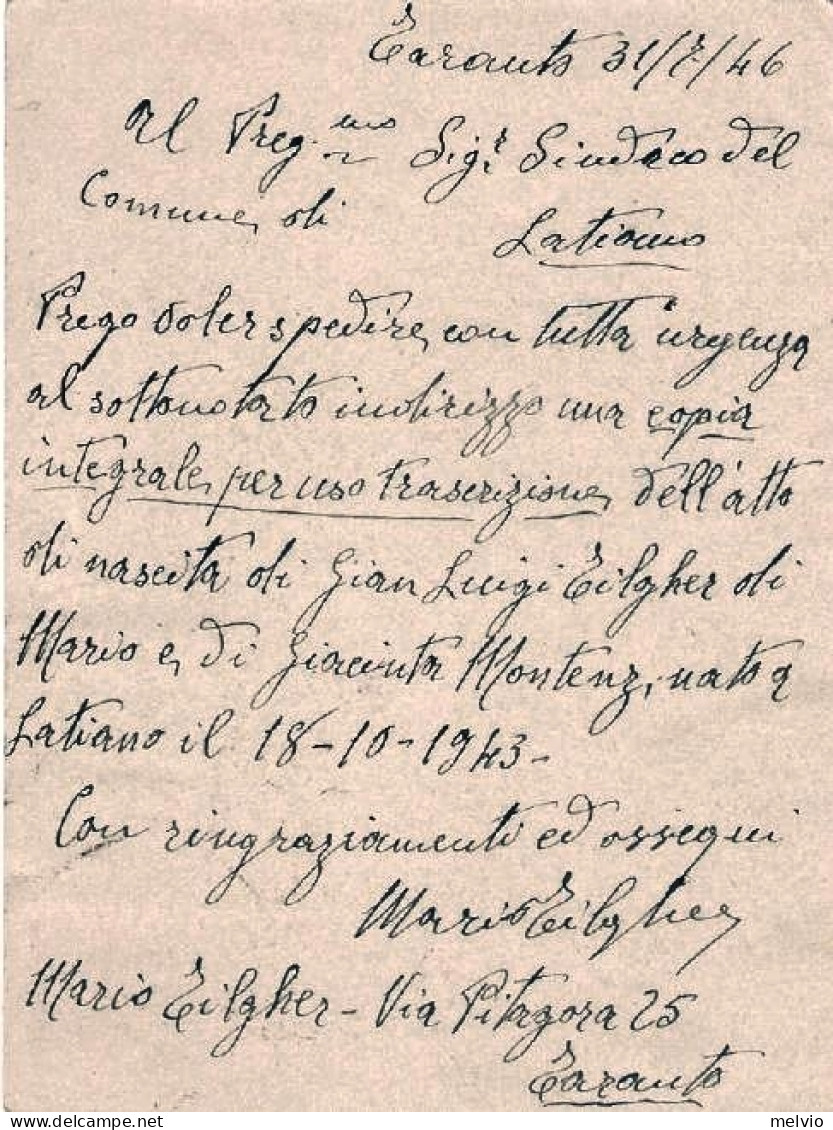 Taranto 31/7/46
Al Preg.mo Sig.r Sindaco del
Comune di
Latiano
Prego voler spedire con tutta urgenza
al sottonotato indirizzo una copia
integrale per uso trascrizione dell'atto
di nascita di Gian Luigi Tilgher di
Mario e di Giacinta Montenz, nato a
Latiano il 18-10-1943-
Con ringraziamenti ed ossequi
Mario Tilgher
Mario Tilgher - Via Pitagora 25
Taranto
delcampe.net
melvio